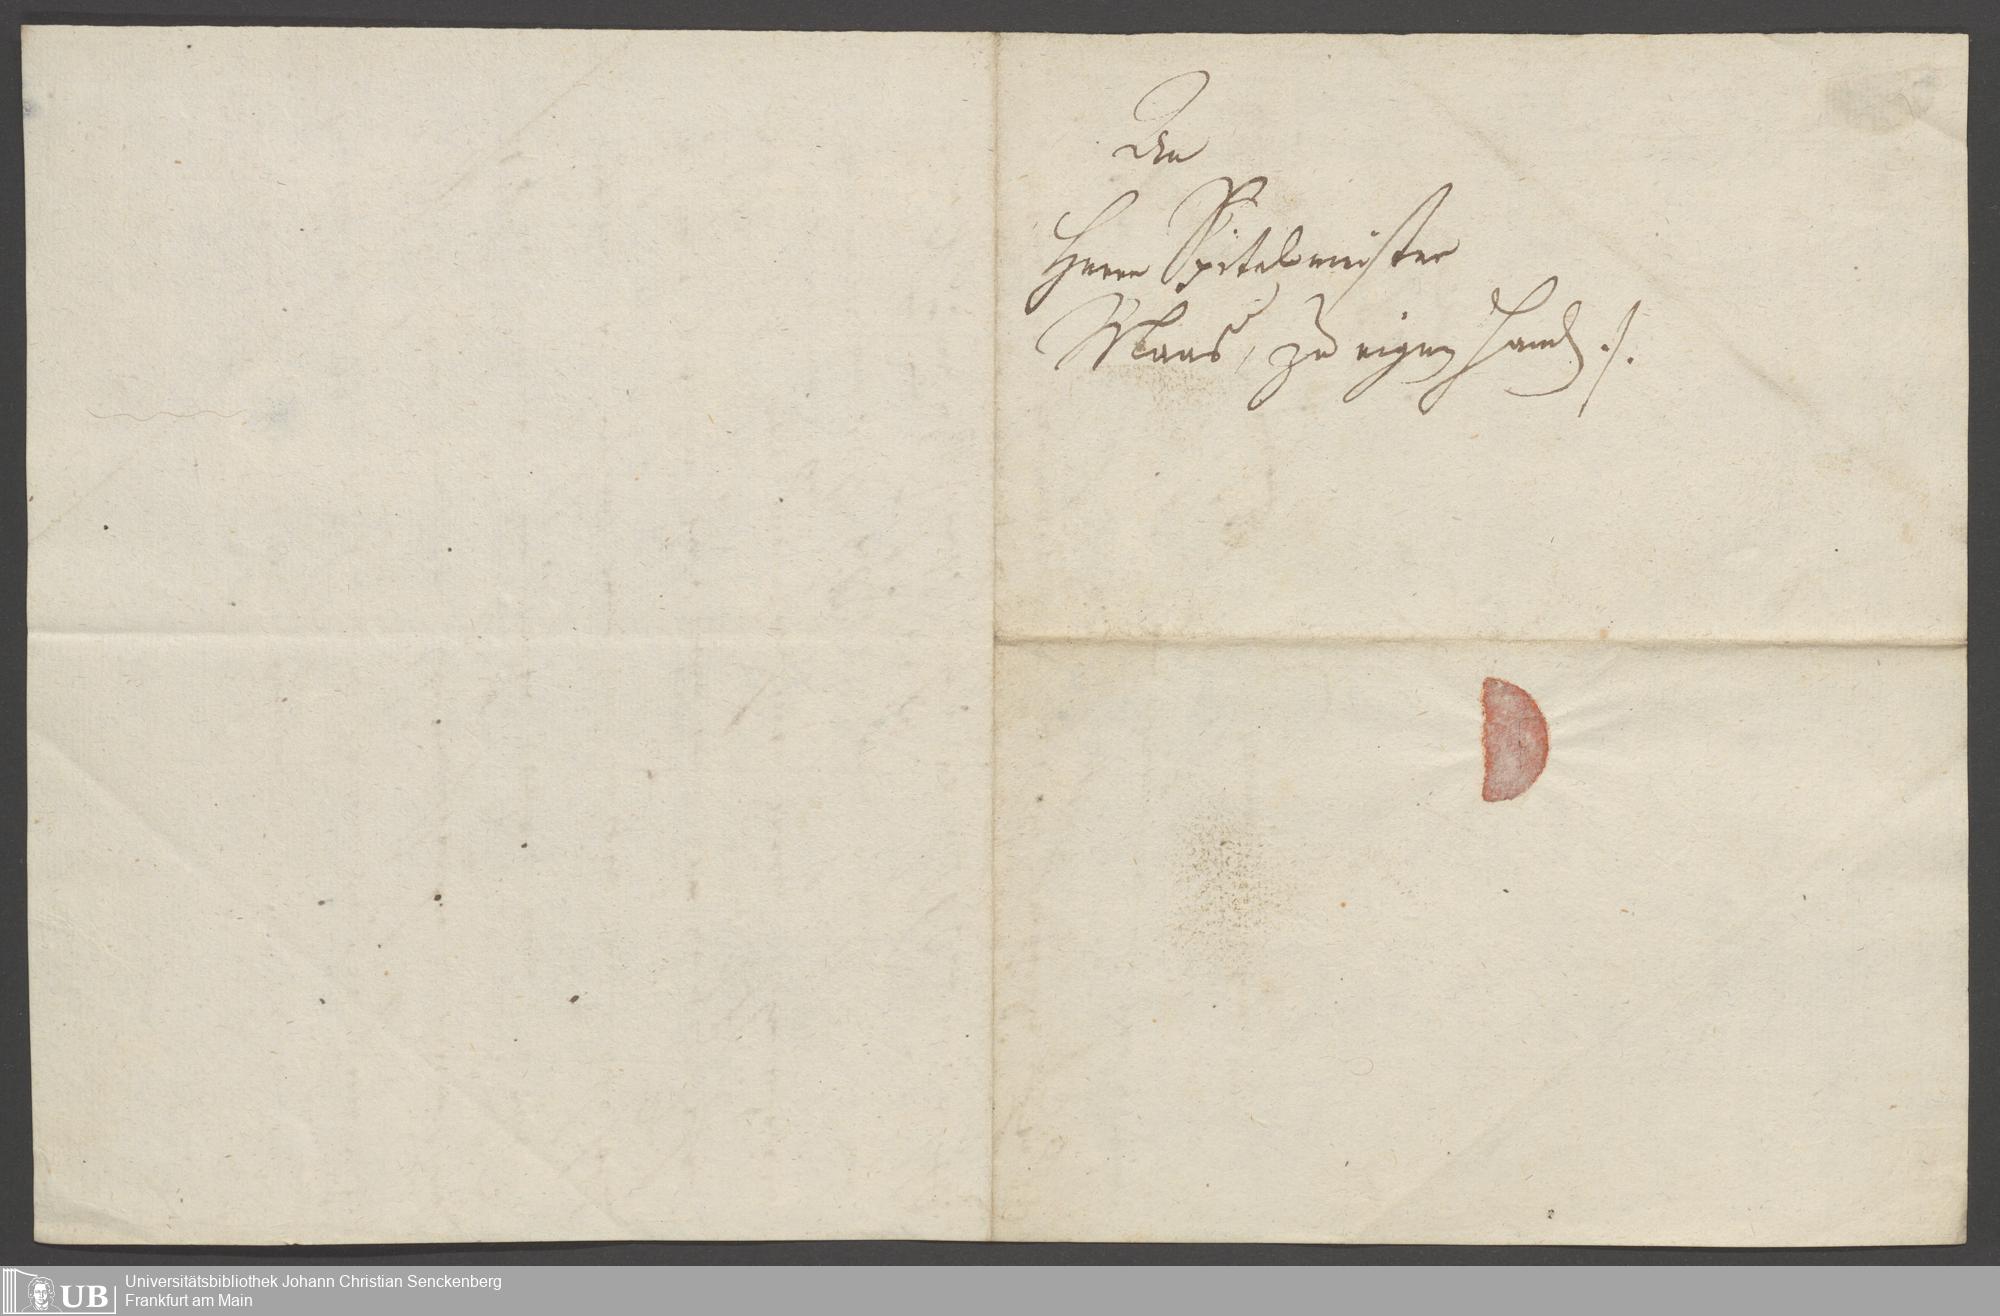 An
Herrn Spitalmeister
Maas, zu eignen Hand ./.
UB
Universitätsbibliothek Johann Christian Senckenberg
Frankfurt am Main